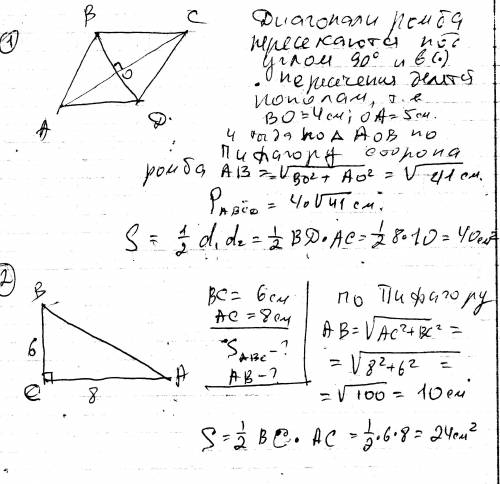 1
B
C
O
A
D
Диагонали ромба
пересекаются под
углом 90° и в (·)
пересечения делятся
пополам, т.е
BO=4см; OA=5см.
и тогда по Δ AOB по
Пифагору сторона
ромба AB = √BO²+AO² = √41 см.
P_ABCD = 4·√41 см.
S = 1/2 d₁ d₂ = 1/2 BD·AC = 1/2 8·10 = 40см²
2
B
6
C
8
A
BC = 6см
AC = 8см
S_ABC - ?
AB - ?
по Пифагору
AB = √AC²+BC² =
= √8²+6² =
= √100 = 10см
S = 1/2 BC · AC = 1/2 · 6 · 8 = 24см²